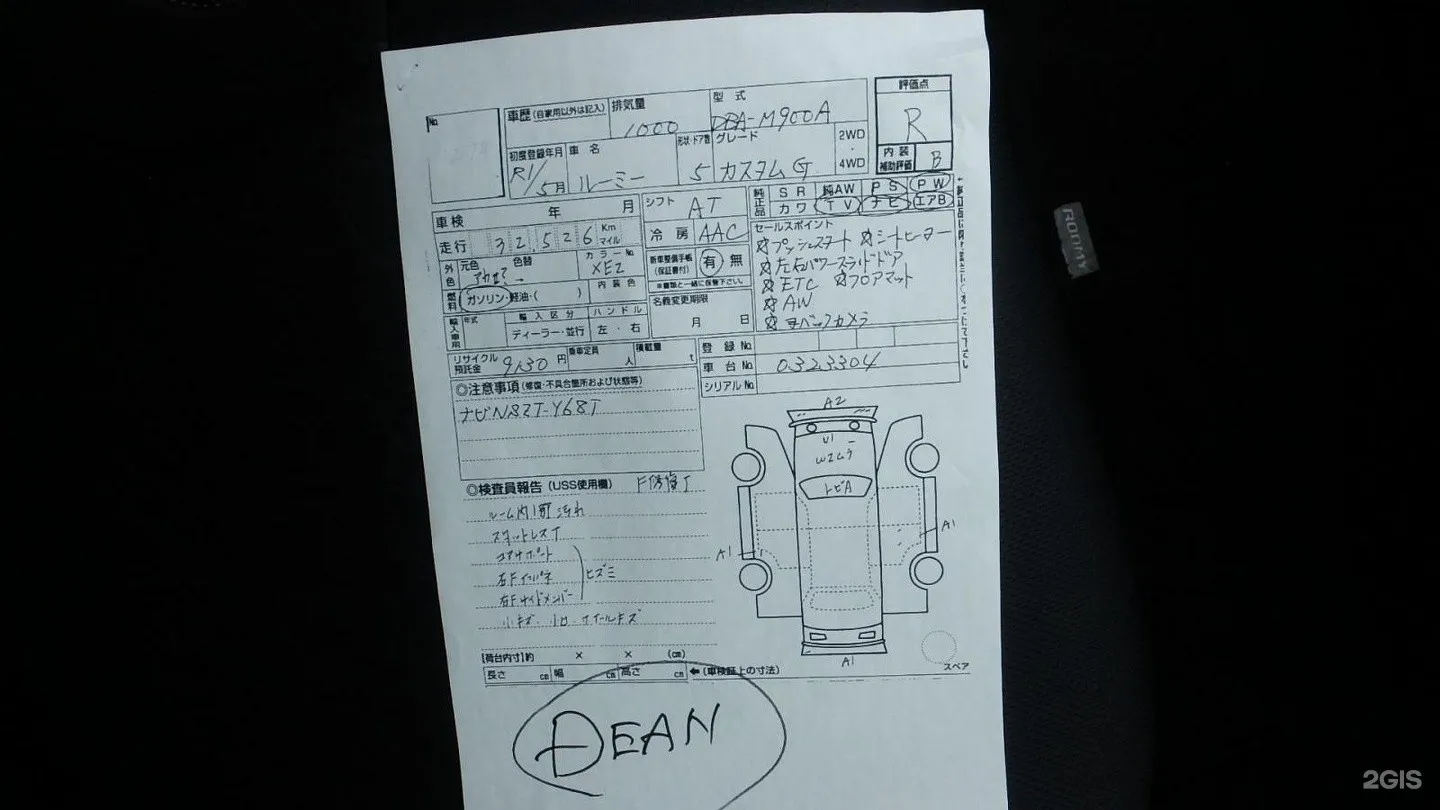 No. 車歴 (自家用以外は記入) 排気量 1000 型 式 DBA-M900A 評価点 R
初度登録年月 R1/5月 車 名 ルーミー 形状・ドア数 5 グレード カスタムG 2WD・4WD 内装補助評価 B
車検 年 月 シフト AT 純正品 SR 純AW PS PW
カワ TV ナビ エアB
走行 32,526 Km マイル 冷房 AAC セールスポイント
☆プッシュスタート ☆シートヒーター
外色 元色 色替 カラーNo. XE2 新車整備手帳 (保証書付) 有 無
☆左右パワースライドドア
※書類と一緒に保管下さい。
☆ETC ☆フロアマット
燃料 ガソリン・軽油・( ) 内装色 名義変更期限 月 日
☆AW
☆バックカメラ
輸入車用 年式 輸入区分 ディーラー・並行 ハンドル 左・右
リサイクル預託金 9130円 乗車定員 人 積載量 t 登録No.
車台No. 0323304
シリアルNo.
◎注意事項 (修復・不具合箇所および状態等)
ナビNSZT-Y68T
◎検査員報告 (USS使用欄) F修復J
ルーム内 汚れ
スタットレスT
コアサポート
右Fインパネ
ヒズミ
右Fサイドメンバー
小キズ・小凹・ホイールキズ
A2
U1
トビA
A1
A1
A1
スペア
【荷台内寸】約 × × (cm)
長さ cm 幅 cm 高さ cm ←(車検証上の寸法)
DEAN
RODMY
2GIS